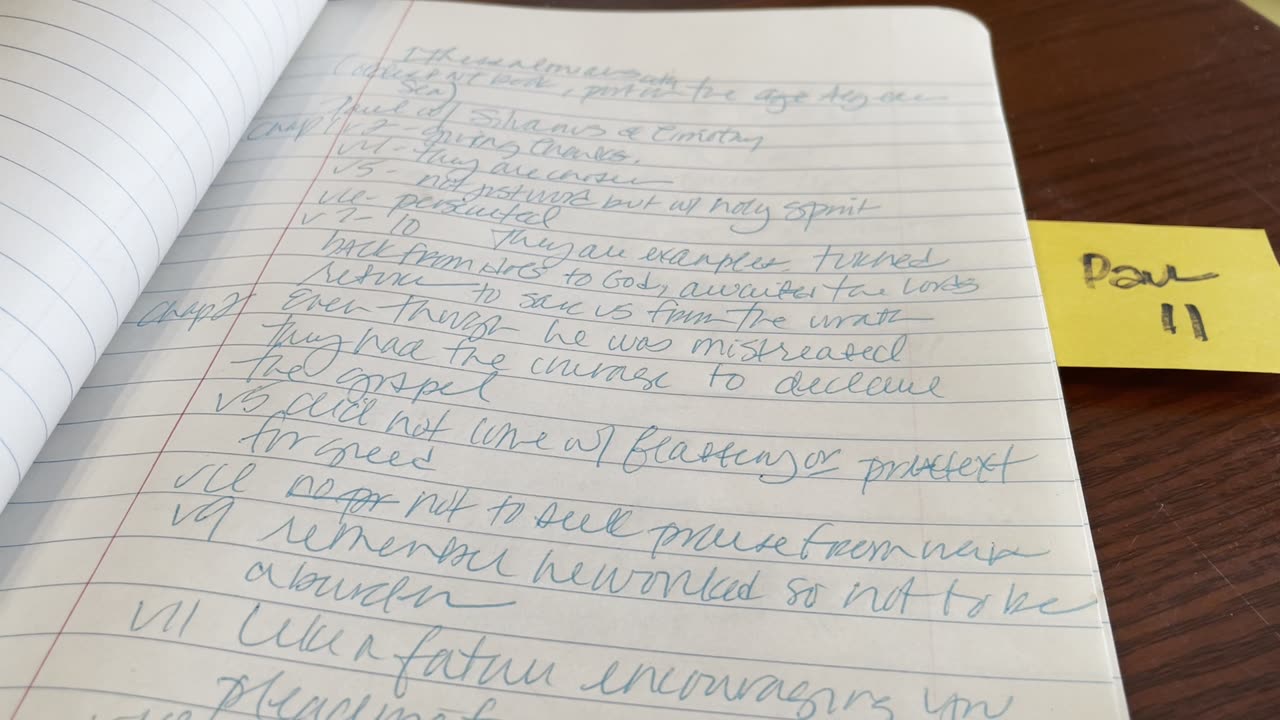 1 Thessalonians
(oldest NT book, port on the age Aegean
Sea)
Paul w/ Silvanus & Timothy
Chap 1 v2 - giving thanks.
v4 - they are chosen
v5 - not just word but w/ holy spirit
v6 - persecuted
v7 - 10 They are examples. turned
back from idols to God, awaited the Lords
return to save us from the wrath
Chap 2 Even though he was mistreated
they had the courage to declare
the gospel
v5 did not come w/ flattery or pretext
for greed
v6 not to seek praise from
v9 remember he worked so not to be
a burden
v11 Like a father encouraging you
Paul
11